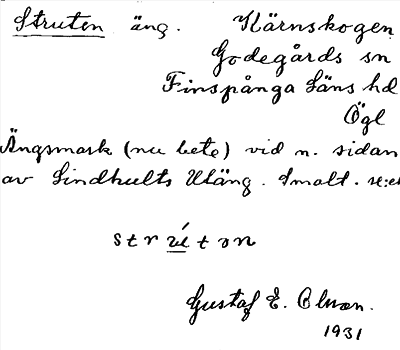 Struton äng. Kärnskogen
Godegårds sn
Finspånga läns hd
Ögl
Ängsmark (nu bete) vid n. sidan
av Lindhults Utäng. Smalt.
strúton
Gustaf E. Olsson.
1931